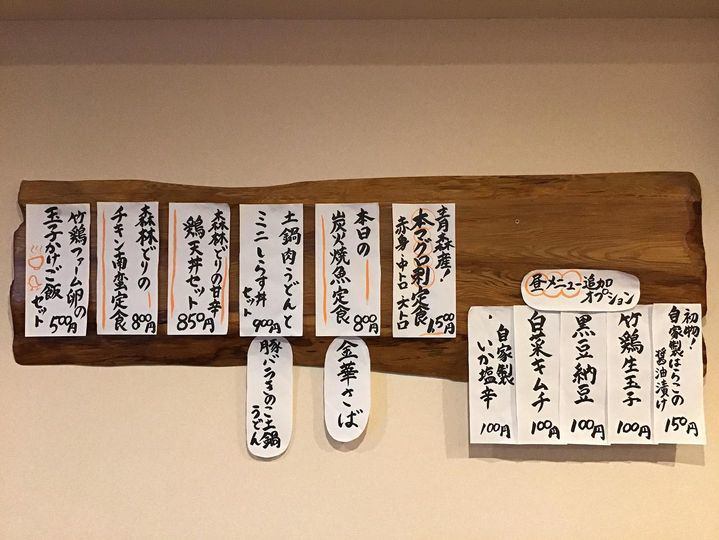 青森産!
本マグロ刺定食
赤身・中トロ 大トロ
1500円
本日の
炭火焼魚定食
800円
金華さば
土鍋肉うどんと
ミニしらす丼
セット
900円
豚バラきのこ土鍋
うどん
森林どりの甘辛
鶏天丼セット
850円
森林どりの
チキン南蛮定食
800円
竹鶏ファーム卵の
玉子かけご飯
セット
500円
昼メニュー追加
オプション
初物!
自家製はらこの
醤油漬け
150円
竹鶏生玉子
100円
黒豆納豆
100円
白菜キムチ
100円
自家製
いか塩辛
100円